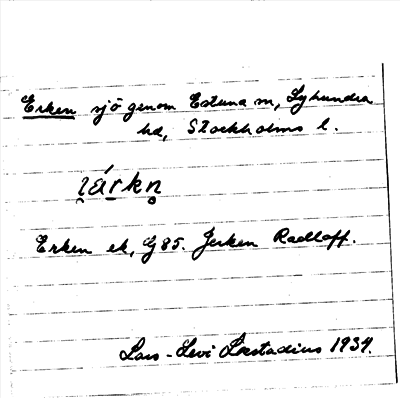 Erken sjö genom Estuna sn, Lyhundra
hd, Stockholms l.
Erken ek, G 85. Jerken Radloff.
Lars-Levi Læstadius 1934.